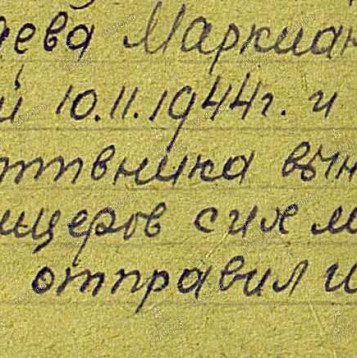 аева Маркиан
й 10.11.1944г. и
ттвника вын
ицеров сих м
отправил и